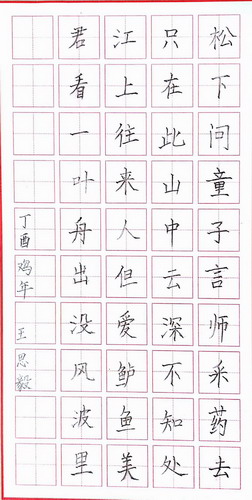 松下问童子言师采药去
只在此山中云深不知处
江上往来人但爱鲈鱼美
君看一叶舟出没风波里
丁酉鸡年王思毅